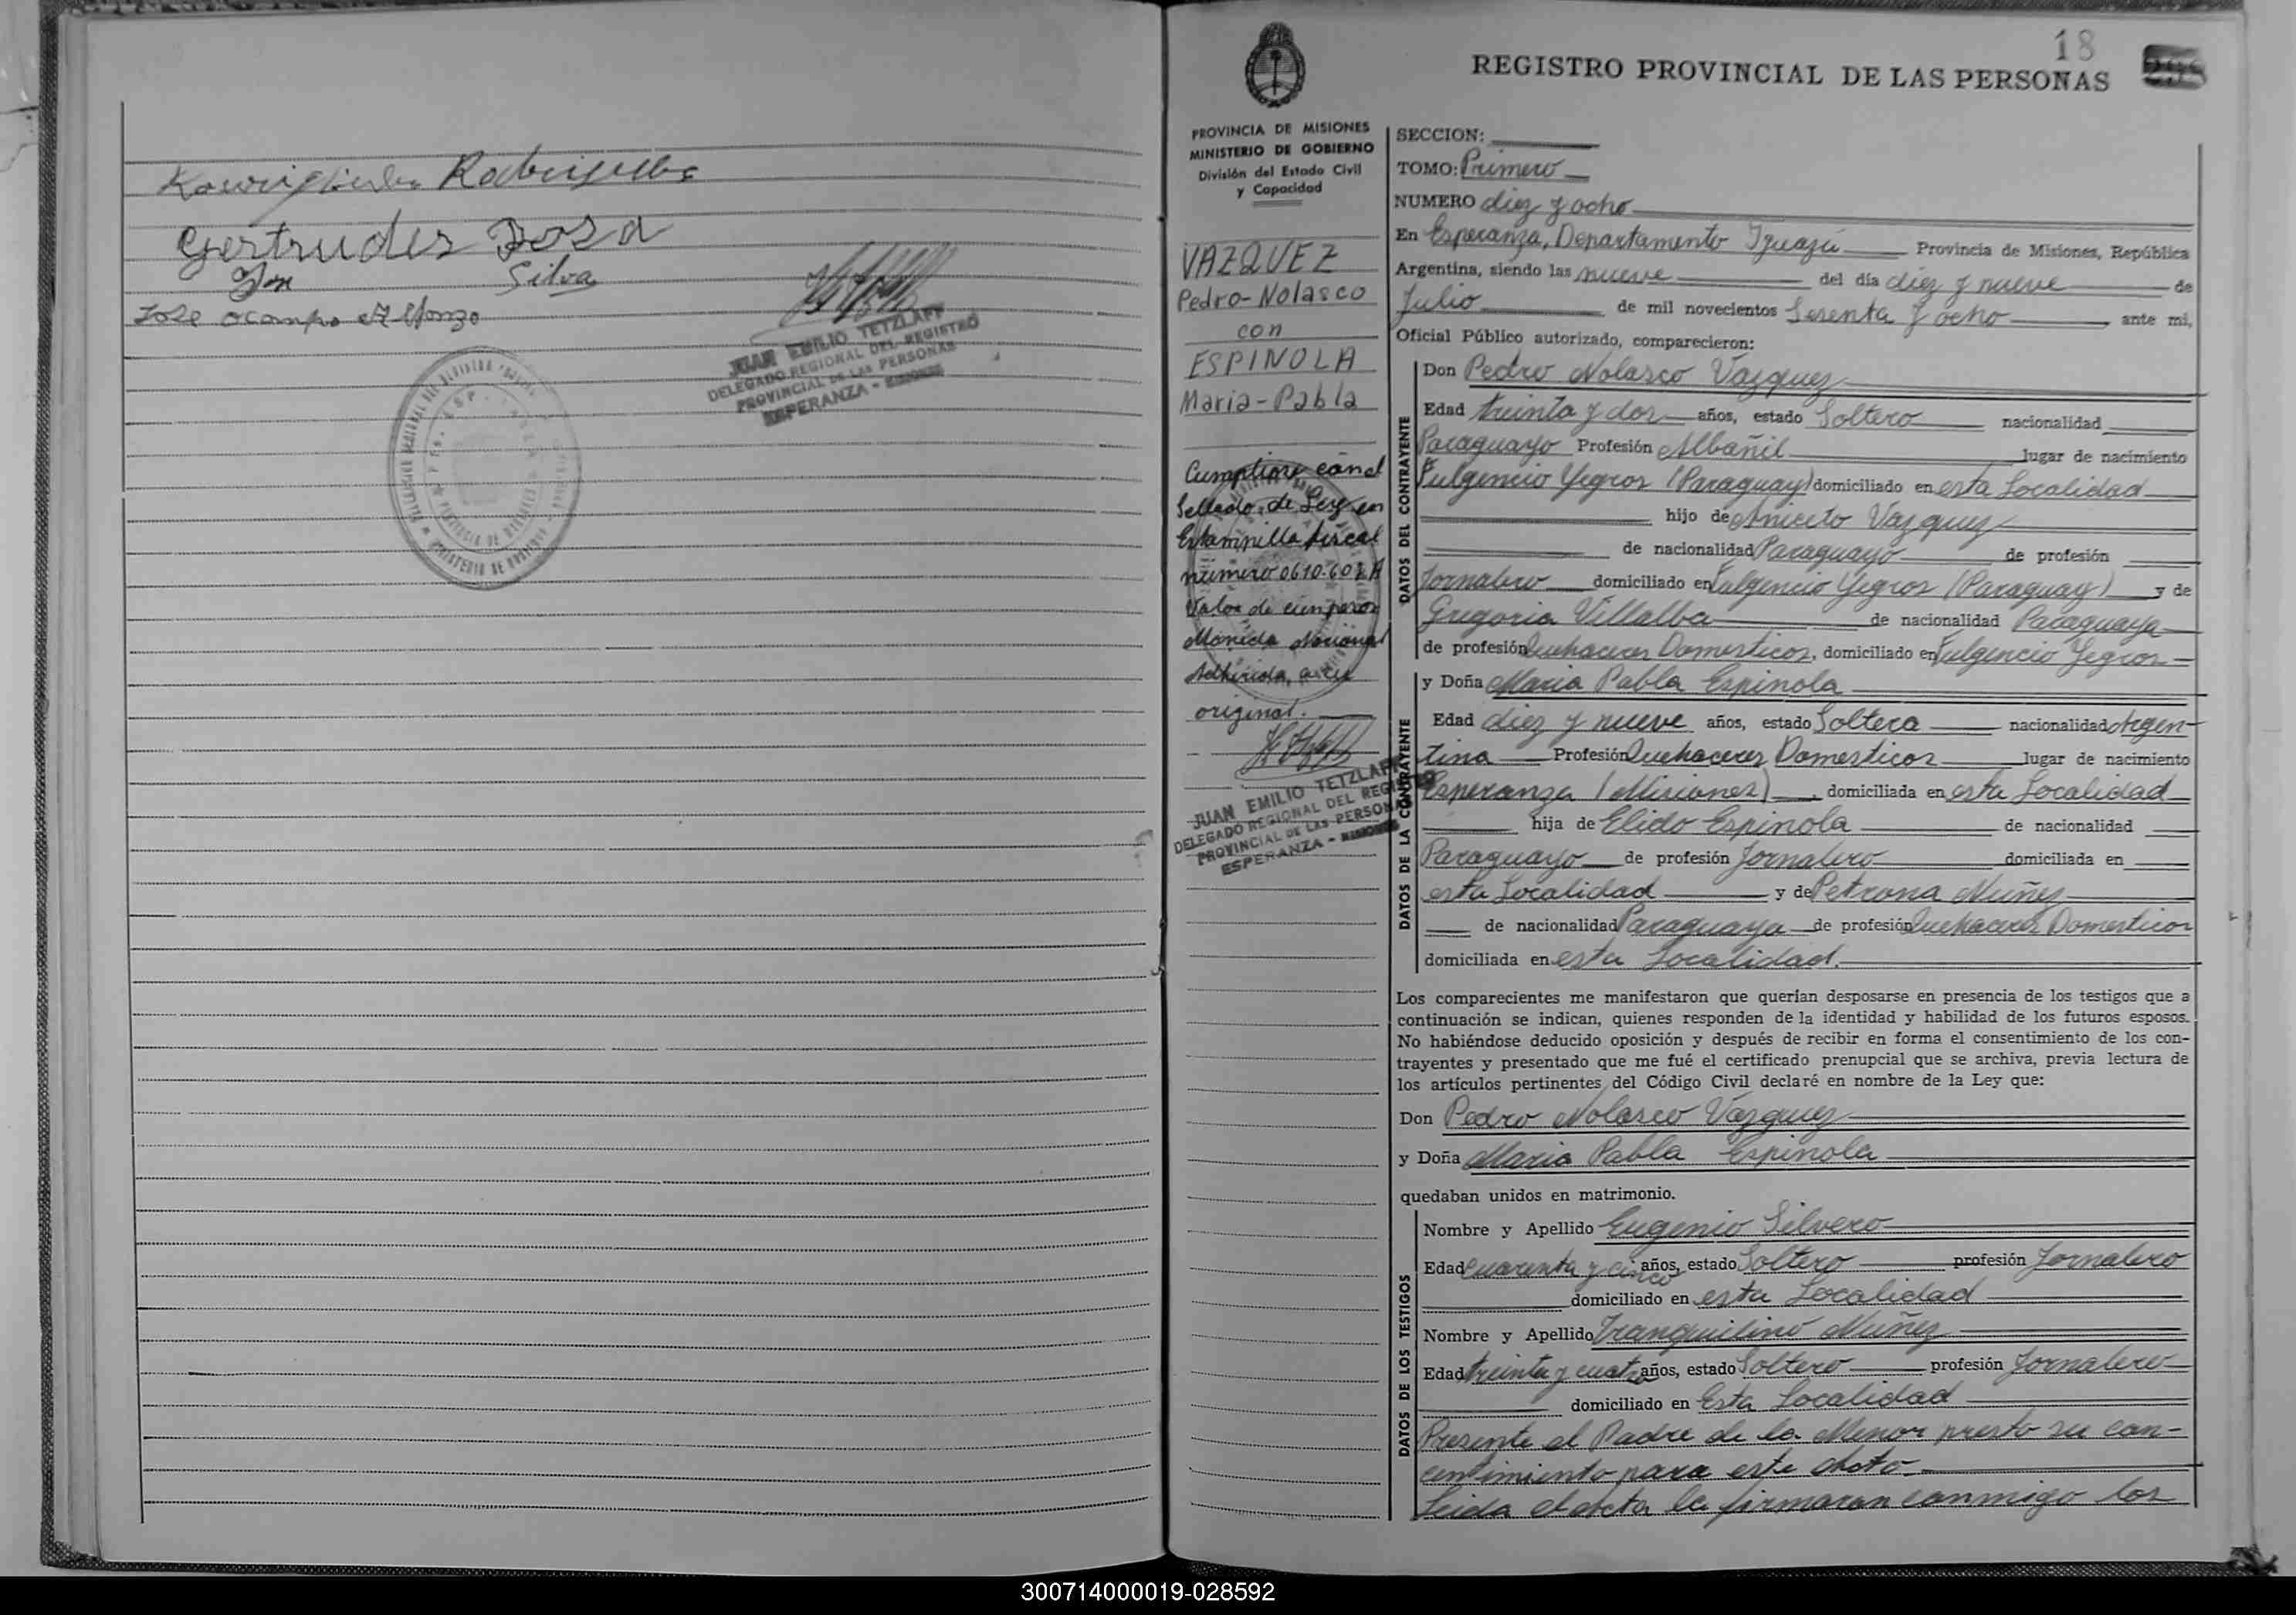 Rodriguez
Gertrudes Sosa
Jon Silva
Jose ocampo Alfonzo
JUAN EMILIO TETZLAFF
DELEGADO REGIONAL DEL REGISTRO
PROVINCIAL DE LAS PERSONAS
ESPERANZA - MISIONES
18
REGISTRO PROVINCIAL DE LAS PERSONAS
298
PROVINCIA DE MISIONES
MINISTERIO DE GOBIERNO
División del Estado Civil
y Capacidad
VAZQUEZ
Pedro-Nolasco
con
ESPINOLA
Maria-Pabla
Cumpliose con el
Sellado de Ley en
Estampilla fiscal
número 0610.602 A
Valor de cien pesos
Moneda Nacional
Adherida, a su
original.
JUAN EMILIO TETZLAFF
DELEGADO REGIONAL DEL REGISTRO
PROVINCIAL DE LAS PERSONAS
ESPERANZA - MISIONES
SECCION:
TOMO: Primero
NUMERO diez y ocho
En Esperanza, Departamento Iguazú Provincia de Misiones, República
Argentina, siendo las nueve del día diez y nueve de
Julio de mil novecientos Sesenta y ocho ante mi,
Oficial Público autorizado, comparecieron:
DATOS DEL CONTRAYENTE
Don Pedro Nolasco Vazquez
Edad treinta y dos años, estado Soltero nacionalidad
Paraguayo Profesión Albañil lugar de nacimiento
Fulgencio Yegros (Paraguay) domiciliado en esta Localidad
hijo de Aniceto Vazquez
de nacionalidad Paraguayo de profesión
Jornalero domiciliado en Fulgencio Yegros (Paraguay) y de
Gregoria Villalba de nacionalidad Paraguaya
de profesión Quehaceres Domesticos, domiciliado en Fulgencio Yegros
DATOS DE LA CONTRAYENTE
y Doña Maria Pabla Espinola
Edad diez y nueve años, estado Soltera nacionalidad Argen-
tina Profesión Quehaceres Domesticos lugar de nacimiento
Esperanza (Misiones), domiciliada en esta Localidad
hija de Elido Espinola de nacionalidad
Paraguayo de profesión Jornalero domiciliada en
esta Localidad y de Petrona Nuñez
de nacionalidad Paraguaya de profesión Quehaceres Domesticos
domiciliada en esta Localidad.
Los comparecientes me manifestaron que querían desposarse en presencia de los testigos que a
continuación se indican, quienes responden de la identidad y habilidad de los futuros esposos.
No habiéndose deducido oposición y después de recibir en forma el consentimiento de los con-
trayentes y presentado que me fué el certificado prenupcial que se archiva, previa lectura de
los artículos pertinentes del Código Civil declaré en nombre de la Ley que:
Don Pedro Nolasco Vazquez
y Doña Maria Pabla Espinola
quedaban unidos en matrimonio.
DATOS DE LOS TESTIGOS
Nombre y Apellido Eugenio Silvero
Edad cuarenta y cinco años, estado Soltero profesión Jornalero
domiciliado en esta Localidad
Nombre y Apellido Tranquilino Nuñez
Edad treinta y cuatro años, estado Soltero profesión Jornalero
domiciliado en Esta Localidad
Presente el Padre de la Menor presto su con-
centimiento para este Acto.
Leida el Acta la firmaron conmigo los
300714000019-028592